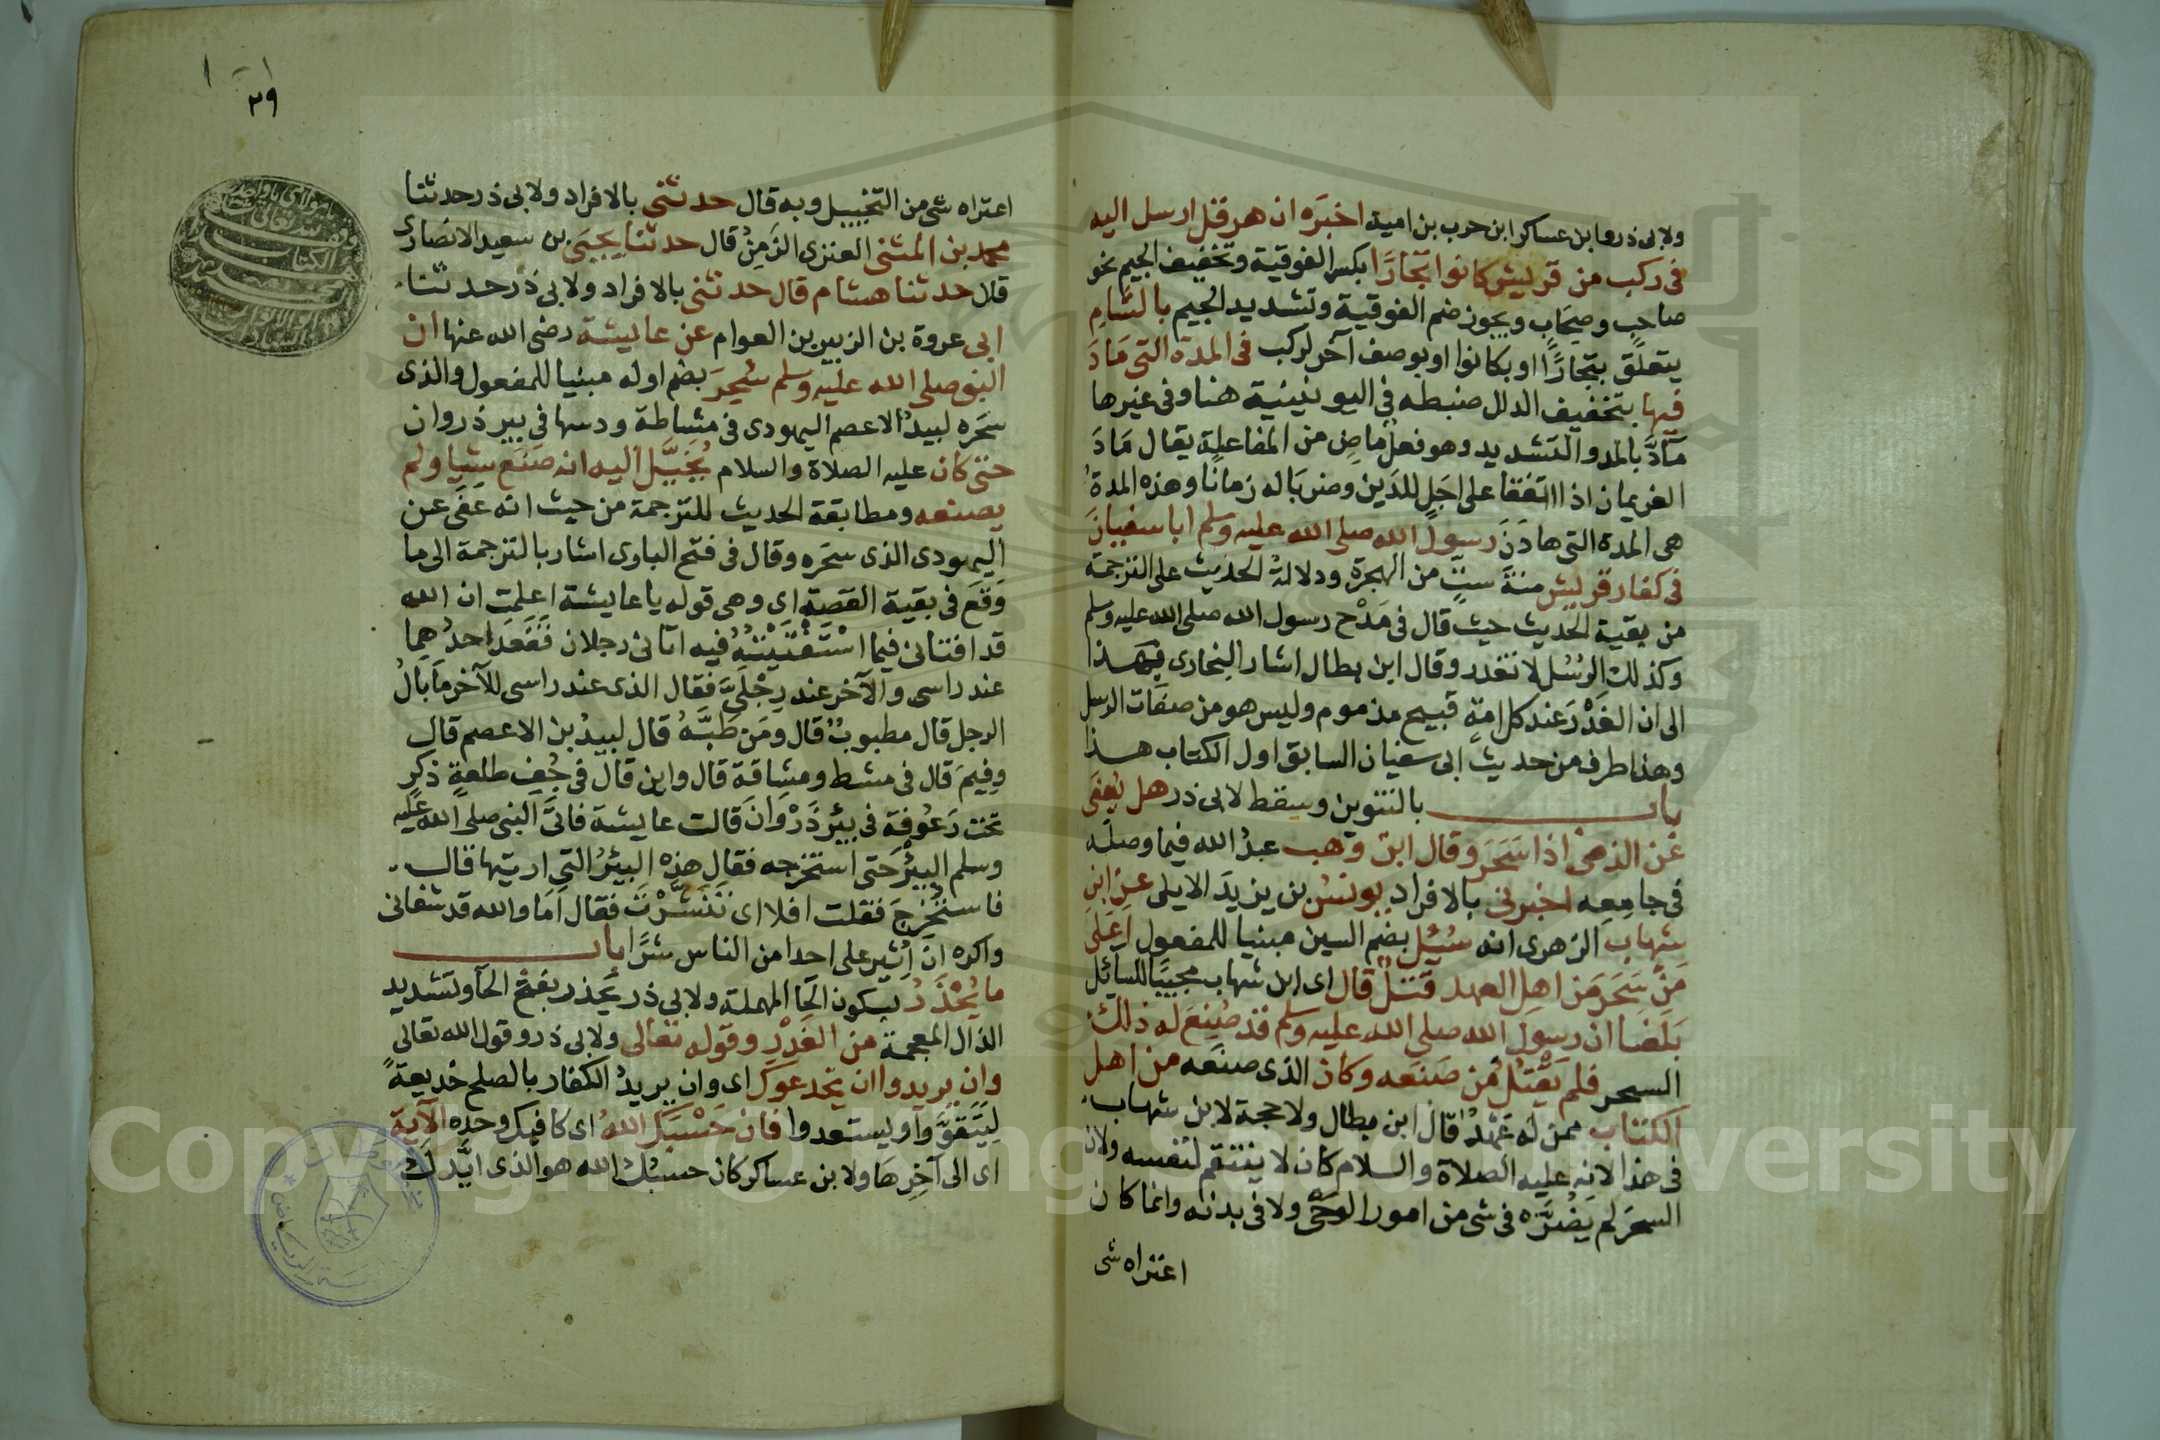 ولابى ذر وابن عساكر ابن حرب بن امية اخبَره ان هرقل ارسل اليه
فى ركب من قريش كانوا تِجَارًا بكسر الفوقية وتخفيف الجيم نحو
صاحبٍ وصِحَابٍ ويجوز ضم الفوقية وتشديد الجيم بالشام
يتعلق بتجارًا او بكانوا او بوصف آخر لركب فى المدة التى مَادَ
فيها بتخفيف الدال ضبطه فى اليونينية هنا وفى غيرها
مآدَّ بالمد والتشديد وهو فعلٌ ماضٍ من المفاعلة يقال مَادَ
الغريمان اذا اتفقا على اجَلٍ للدَين وضربَا له زمانًا وهذه المدةُ
هى المدة التى هادَنَ رسولُ الله صلى الله عليه وسلم ابا سفيانَ
فى كفار قريش سنةَ ستٍّ من الهجرة ودلالة الحديث على الترجمة
من بقية الحديث حيث قال فى مَدْح رسول الله صلى الله عليه وسلم
وكذلك الرُسُل لا تغدر وقال ابن بطال اشار البخارى بهذا
الى ان الغَدْرَ عند كل امةٍ قبيح مذموم وليس هو من صفات الرسل
وهذا طرف من حديث ابى سفيان السابق اول الكتاب هذا
باب بالتنوين وسقط لابى ذر هل يُعفَى
عن الذمى اذا سَحَر وقال ابن وَهب عبدُ الله فيما وصله
فى جامِعِه اخبرنى بالافراد يونسُ بن يزيدَ الايلى عن ابنِ
شهاب الزهرى انه سُئِل بضم السين مبنيا للمفعول اَعَلَى
مَنْ سَحَر مَن اهل العهد قَتلٌ قال اى ابن شهاب مجيبًا للسآئل
بَلَغنا ان رسول الله صلى الله عليه وسلم قد صُنِعَ له ذلك
السحر فلم يَقْتُلْ مَن صَنعَه وكان الذى صنعَه من اهل
الكتاب ممن له عَهْدٌ قال ابن بطال ولا حجة لابن شهاب
فى هذا لانه عليه الصلاة والسلام كان لا ينتقم لنفسه ولان
السحرَ لم يَضُرَّه فى شى من امور الوَحى ولا فى بدنه وانما كان
اعتراه شى
٣٩
اعتراه شى من التخييل وبه قال حدثنى بالافراد ولابى ذر حدثنا
محمد بن المثنى العنزى الزَمِنُ قال حدثنا يحيى بن سعيد الانصارى
قال حدثنا هشام قال حدثنى بالافراد ولابى ذر حدثنا
ابى عروة بن الزبير بن العوام عن عايشة رضى الله عنها ان
النبى صلى الله عليه وسلم سُحِرَ بضم اوله مبنيا للمفعول والذى
سحَره لبيدُ الاعصم اليهودى فى مشاطة ودسها فى بير ذروان
حتى كان عليه الصلاة والسلام يُخَيَّل اليه انه صَنَع شيا ولم
يصنعه ومطابقة الحديث للترجمة من حيث انه عَفَى عن
اليهودى الذى سحَره وقال فى فتح البارى اشار بالترجمة الى ما
وَقَع فى بقية القصة اى وهى قوله يا عايشة اعلمتِ ان الله
قد افتانى فيما اسْتَفْتَيْتُهُ فيه اتانى رجلان فَقَعَد احدُهما
عند راسى والآخر عند رِجْلَىَّ فقال الذى عند راسى للآخر مَا بَالُ
الرجل قال مطبوبٌ قال ومَن طَبَّهُ قال لبيدُ بن الاعصم قال
وفِيمَ قال فى مشط ومشاقة قال واين قال فى جُفِّ طلعةٍ ذكرٍ
تحت رَعُوفَةٍ فى بيْرِ ذَرْوَانَ قالت عايشة فاتى النبى صلى الله عليه
وسلم البيْرَ حتى استخرجه فقال هذه البيْرُ التى اريتها قال
فاستُخْرِجَ فقلت افلا اى تَنَشَّرْتَ فقال اَمَا والله قد شفانى
واكره ان اُثير على احد من الناس شرًّا باب
ما يُحْذَرُ بسكون الحَا المهملة ولابى ذر يحَذر بفتح الحآ وتشديد
الذال المعجمة من الغَدْرِ وقوله تعالى ولابى ذر وقول الله تعالى
وان يريدوا ان يخدعوك اى وان يريدُ الكفار بالصلح خديعةً
لِيَتَقَوَّوا ويستعدوا فان حَسْبَكَ اللهُ اى كافيك وحده الآية
اى الى آخِرِهَا ولابن عساكر كان حسبُك الله هو الذى ايَّدك
Copyright © King Saud University